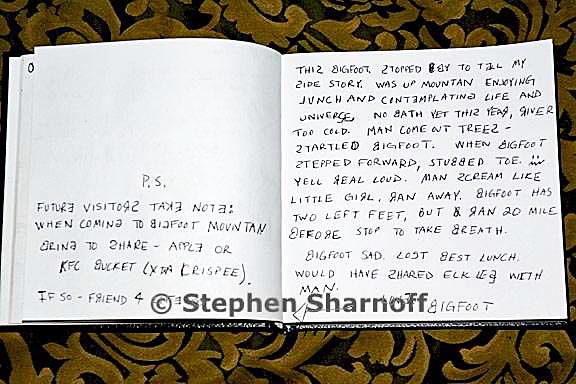 P.S.
FUTURE VISITORS TAKE NOTE:
WHEN COMING TO BIGFOOT MOUNTAN
BRING TO SHARE - APPLE OR
KFC BUCKET (XTA CRISPEE).
IF SO - FRIEND 4
THIS BIGFOOT. STOPPED BY TO TELL MY
SIDE STORY. WAS UP MOUNTAN ENJOYING
LUNCH AND CONTEMPLATING LIFE AND
UNIVERSE, NO BATH YET THIS YEAR, RIVER
TOO COLD. MAN COME OUT TREES -
STARTLED BIGFOOT. WHEN BIGFOOT
STEPPED FORWARD, STUBBED TOE.
YELL REAL LOUD. MAN SCREAM LIKE
LITTLE GIRL, RAN AWAY. BIGFOOT HAS
TWO LEFT FEET, BUT B RAN 20 MILE
BEFORE STOP TO TAKE BREATH.
BIGFOOT SAD. LOST BEST LUNCH.
WOULD HAVE SHARED ELK LEG WITH
MAN.
BIGFOOT
© Stephen Sharnoff